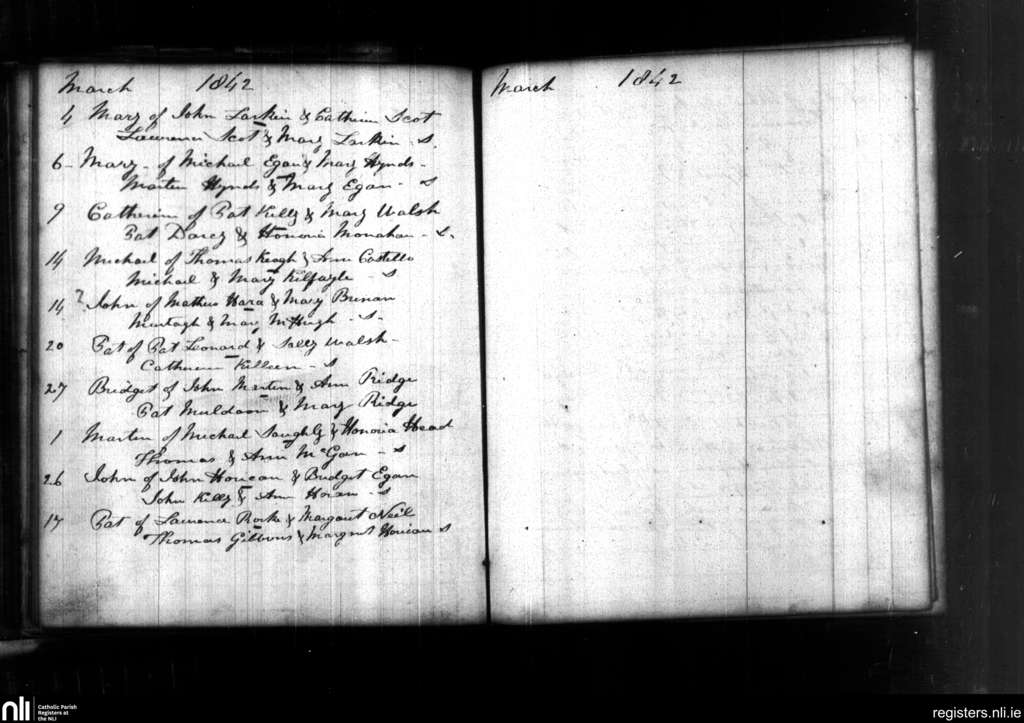 March 1842
4 Mary of John Larkin & Catherin Scot
Lawrence Scot & Mary Larkin - S.
6 - Mary - of Michael Egan & Mary Hynds -
Martin Hynds & Mary Egan - S
9 Catherin of Pat Killy & Mary Walsh
Pat Darcy & Honoria Monahan - S.
14 Michael of Thomas Keogh & Ann Costello
Michael & Mary Kilfayle - S
14 John of Mathew Hara & Mary Brenan
Murtagh & Mary McHugh - S -
20 Pat of Pat Leonard & Sally Walsh -
Catherin Killeen - S
27 Bridget of John Martin & Ann Ridge
Pat Muldoon & Mary Ridge
1 Martin of Michael & Honoria Head
Thomas & Ann - S
26 John of John Horican & Bridget Egan
John Killy & Ann Horan - S
17 Pat of Lawrence Rorke & Margaret Neil
Thomas Gibbons & Margret Horican S
March 1842
nli
Catholic Parish
Registers at
the NLI
registers.nli.ie